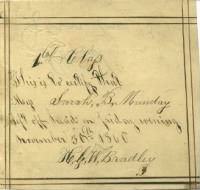 1st Class
This is to certify that
Miss Sarah, B, Munday
left off head on friday evening
November 30th 1860
W. G. W. Bradley